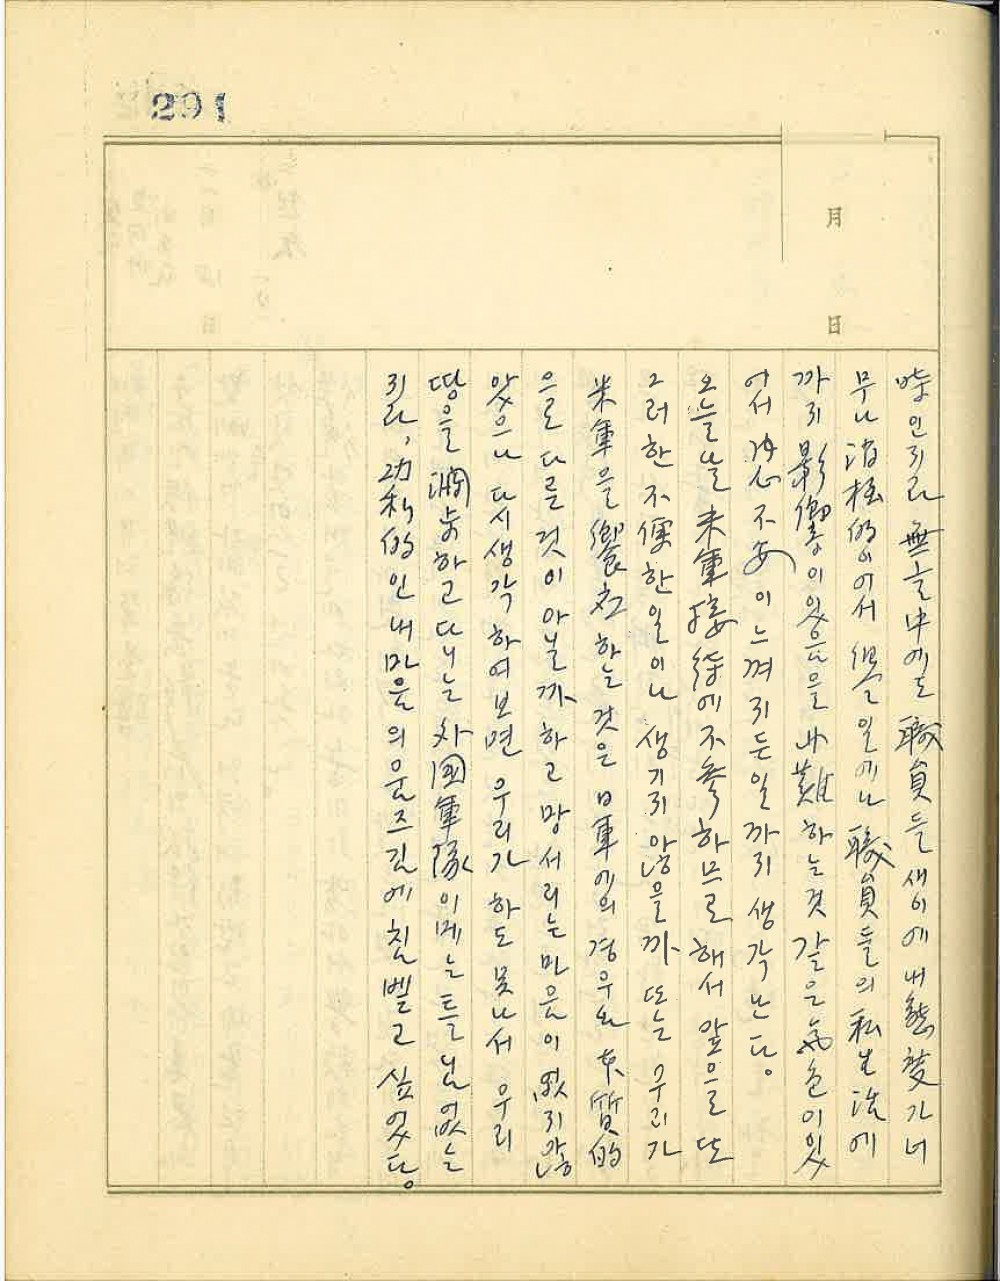 291
月
日
때인지라 無言中에도 職員들 새이에 내 態度가 너
무나 消極的이어서  惧놀일에나 職員들의 私生活에
까지 影響이 있음을 非難하는 것 같은 氣色이 있
어서 내心 不安이 느껴지든 일까지 생각난다。
오늘날 米軍接待에 不參하므로 해서 앞으로 또
그러한 不便한 일이나 생기지 않을까 또는 우리가
米軍을 饗応하는 것은 日軍에의 경우와 本質的
으로 다를 것이 아닐까 하고 망서리는 마음이 없지 않
았으나 다시 생각하여 보면 우리가 하도 못나서 우리
땅을 闊步하고 다니는 外國軍隊이메는 틀님없는
지라, 功利的인 내 마음의 움즈김에 침 벨고 싶었다。